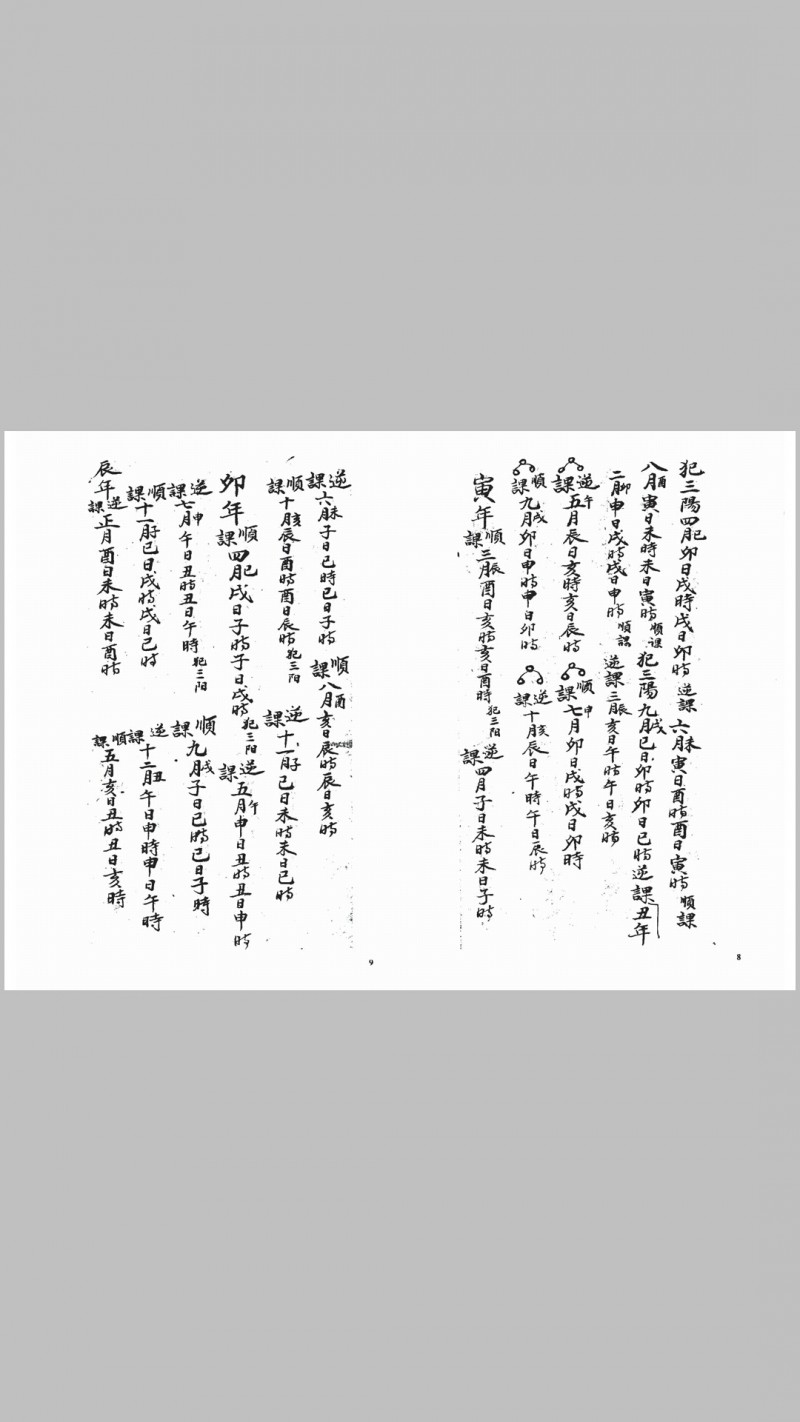 犯三陽四月巳卯日戌時戌日卯時 逆課 六月未寅日酉時酉日寅時 順課
八月酉寅日未時未日寅時 順課 犯三陽九月戌巳日卯時卯日巳時逆課 丑年
二月卯申日戌時戌日申時 順課 逆課三月辰亥日午時午日亥時
逆課五月午辰日亥時亥日辰時 順課七月申卯日戌時戌日卯時
順課九月戌卯日申時申日卯時 逆課十月亥辰日午時午日辰時
寅年 順課三月辰酉日亥時亥日酉時 犯三陽 逆課四月子日未時未日子時
8
逆課六月未子日巳時巳日子時 順課八月酉亥日辰時辰日亥時
順課十月亥辰日酉時酉日辰時 犯三陽 逆課十一月子巳日未時未日巳時
卯年 順課四月巳戌日子時子日戌時 犯三陽 逆課五月午申日丑時丑日申時
逆課七月申午日丑時丑日午時 犯三阳 順課九月戌子日巳時巳日子時
順課十一月子巳日戌時戌日巳時 逆課十二月丑午日申時申日午時
辰年 逆課正月酉日未時未日酉時 順課五月亥日丑時丑日亥時
9